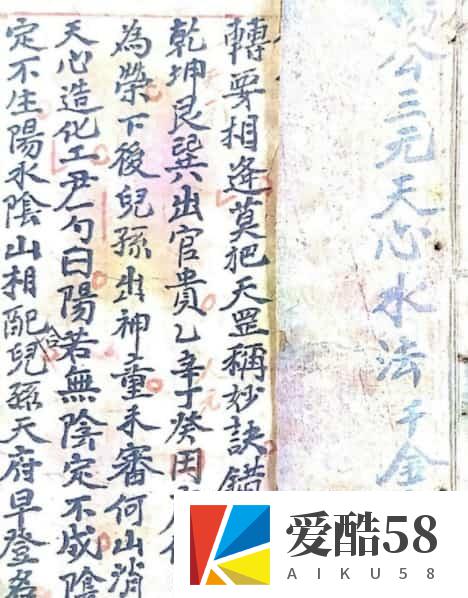 公三元天心水法 千金
轉要相逢莫把天罡稱妙訣錯
乾坤艮巽出官貴乙辛丁癸田
為榮下後兒孫出神童未審何山消
天心造化工尹勺曰陽若無陰定不成陰
定不生陽水陰山相配合兒孫天府早登名
爱酷58
AIKU58